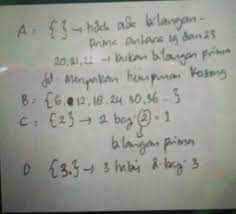 A = { } → tidak ada bilangan
prima antara 19 dan 23
20,21,22 → bukan bilangan prima
Jd. Merupakan himpunan kosong
B = {6, 12, 18, 24, 30, 36 ..}
C = {2} → 2 bag 2 = 1
bilangan prima
D {3.} → 3 habis d bag 3